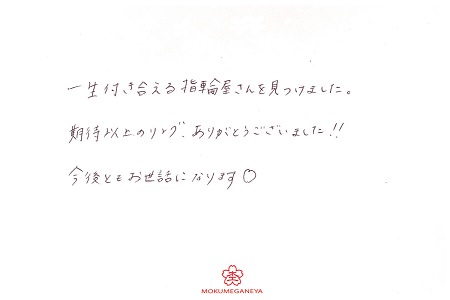 一生付き合える指輪屋さんを見つけました。
期待以上のリング、ありがとうございました!!
今後ともお世話になります○
杢
MOKUMEGANEYA